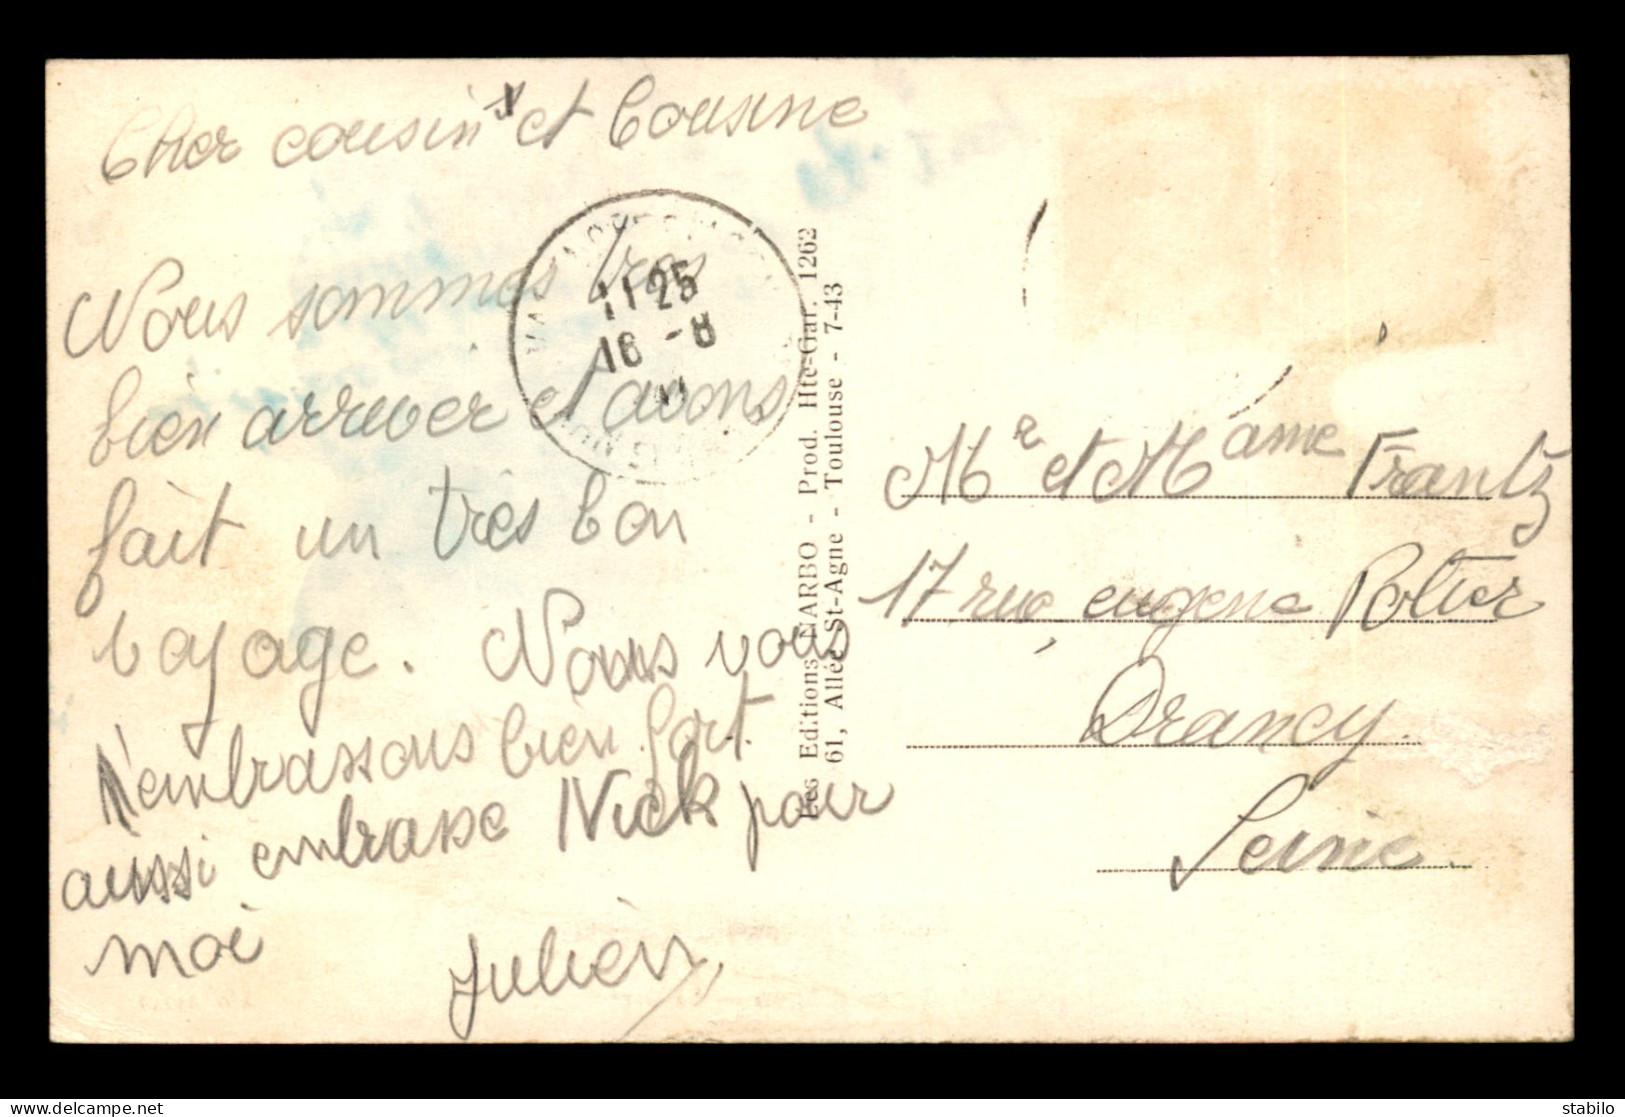 Cher cousin et Cousine
Nous sommes tres
bien arriver et avons
fait un très bon
voyage. Nous vous
n'embrassons bien fort
aussi embrasse Nick pour
moi
Julien
11 25
16 - 8
Les Editions NARBO - Prod. Hte-Gar. 1262
61, Allée St-Agne - Toulouse - 7-43
Mr et Mame Frantz
17 rue, eugene Potier
Drancy.
Seine.
stabilo delcampe.net